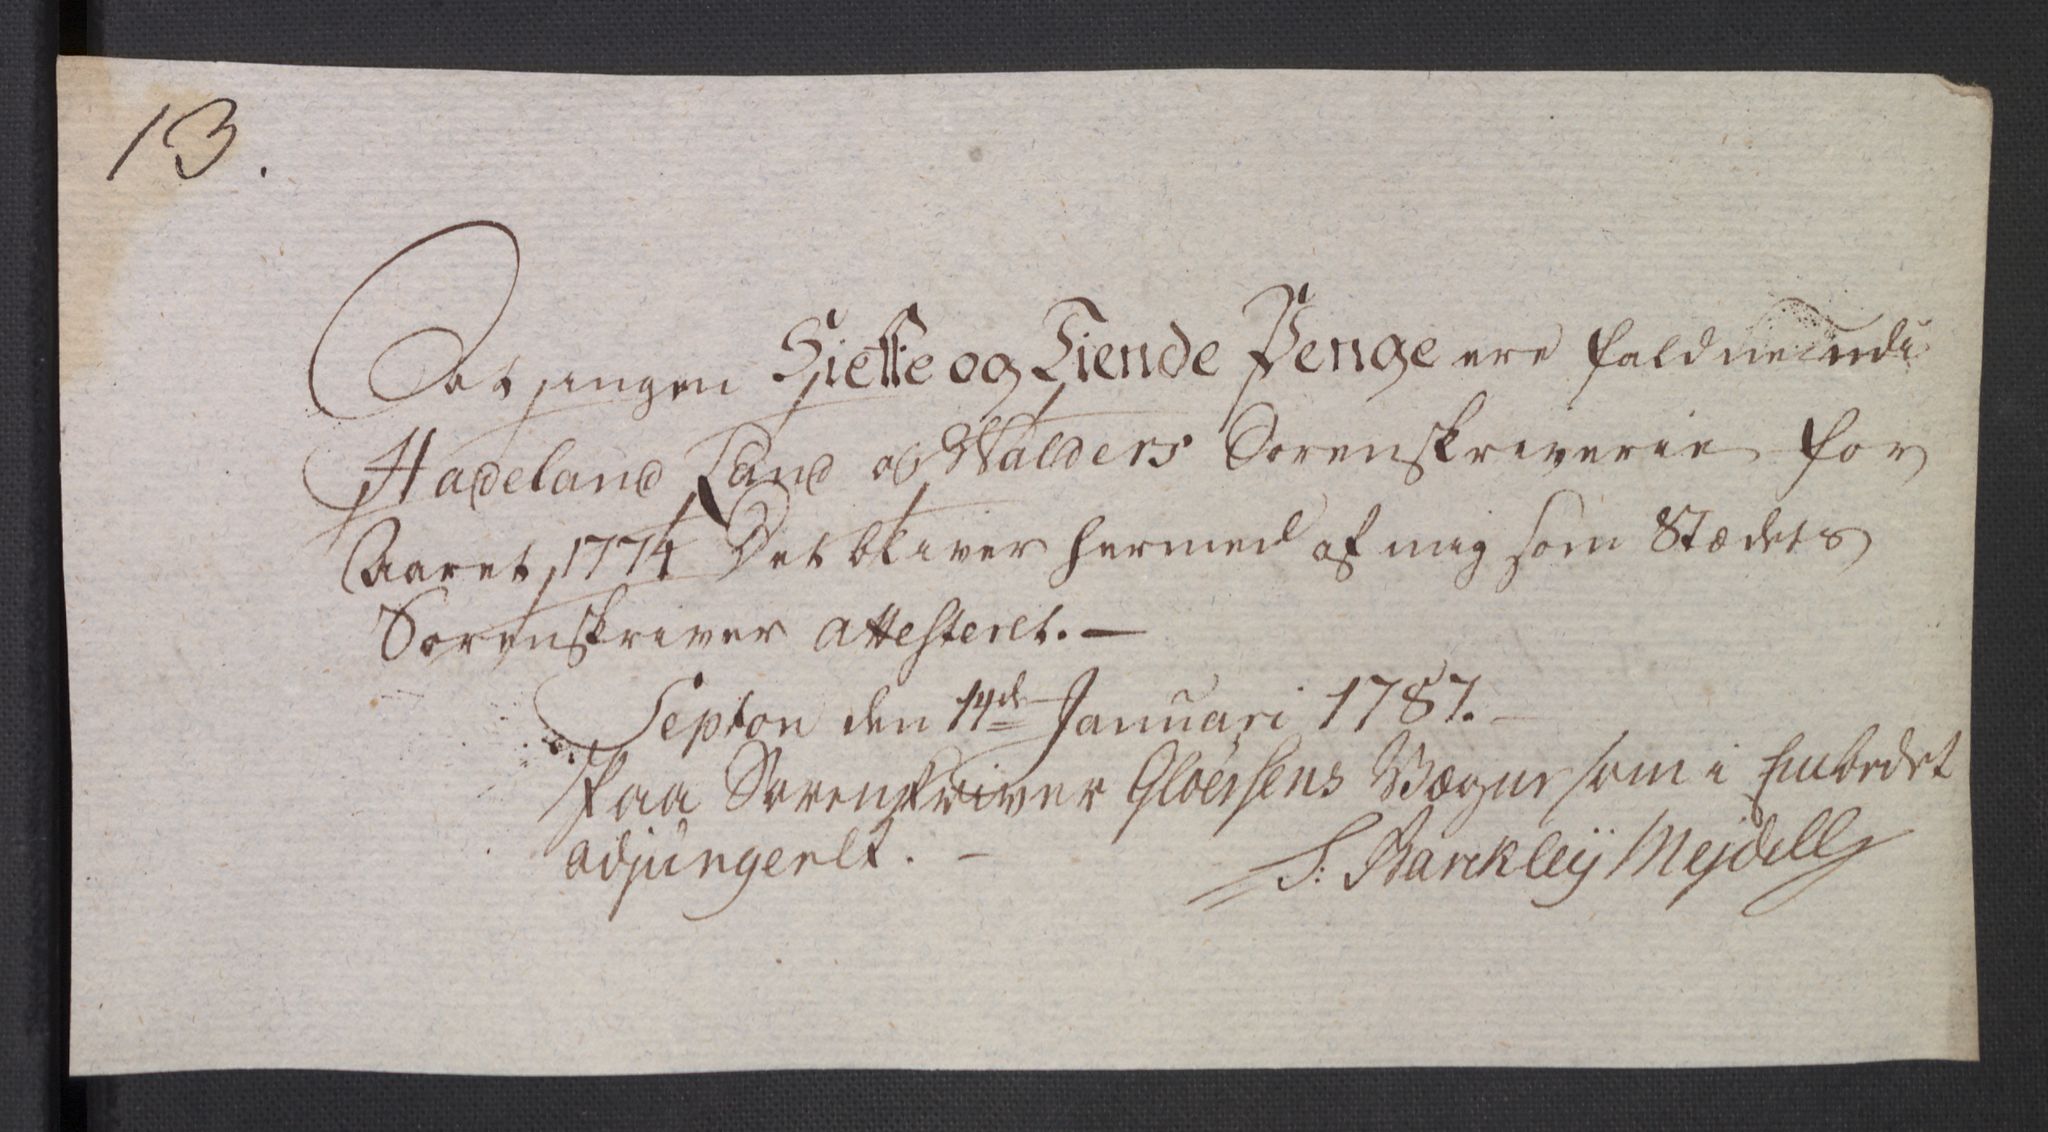 13.
At ingen Siette og Tiende Penge ere faldne udi
Hadeland Land og Walders Sorenskriverie for
Aaret 1774 Det bliver hermed af mig som Stædets
Sorenskriver attesteret. —
Septon den 14de Januari 1787. —
Paa Sorenskriver Gloersens Vægne som i Embedet
adjungerlt. —
S: Barckleÿ Mejdell